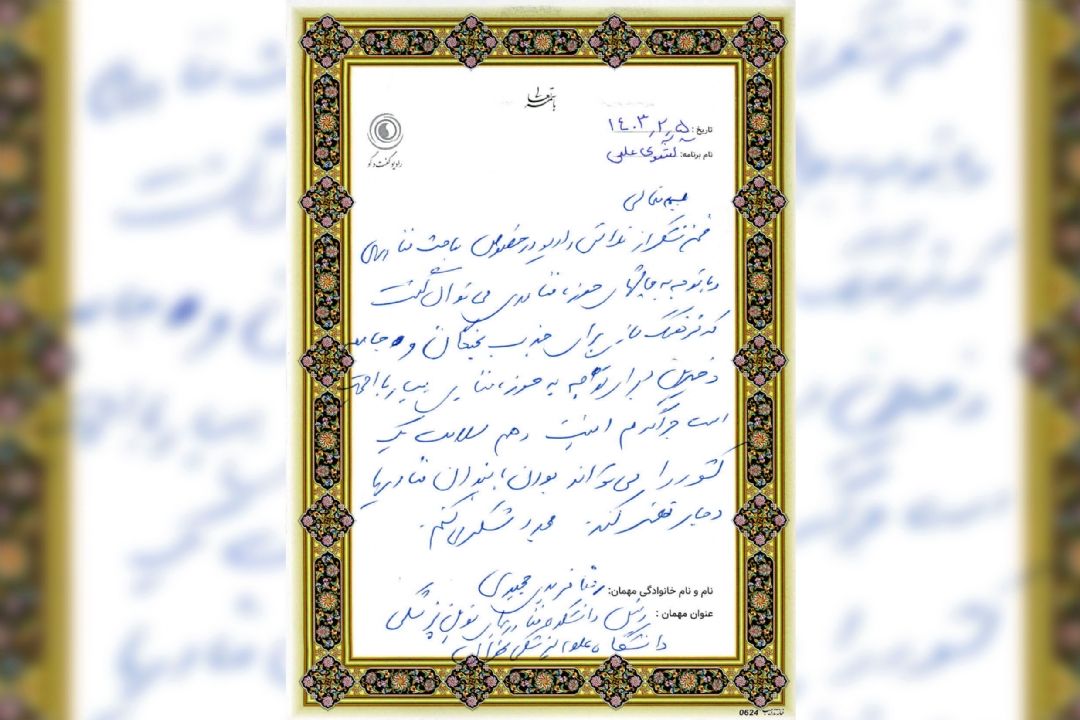 باسمه تعالی
رادیو گفت و گو
تاریخ: ۱۴۰۳٫۲٫۵
نام برنامه: گفتگوی علمی
بسمه تعالی
ضمن تشکر از تلاش رادیو در خصوص مباحث فناوری
و با توجه به چالشهای حوزه فناوری می توان گفت
که فرهنگ سازی برای جذب نخبگان و
برای توجه به حوزه بسیار با اهمیت
است چرا که هم امنیت و هم سلامت یک
کشور را می تواند بودن
کند. مجدد تشکر می کنم.
نام و نام خانوادگی مهمان: رضا فریدی مجیدی
عنوان مهمان: رئیس دانشکده فناوریهای نوین پزشکی
دانشگاه علوم پزشکی تهران
0624